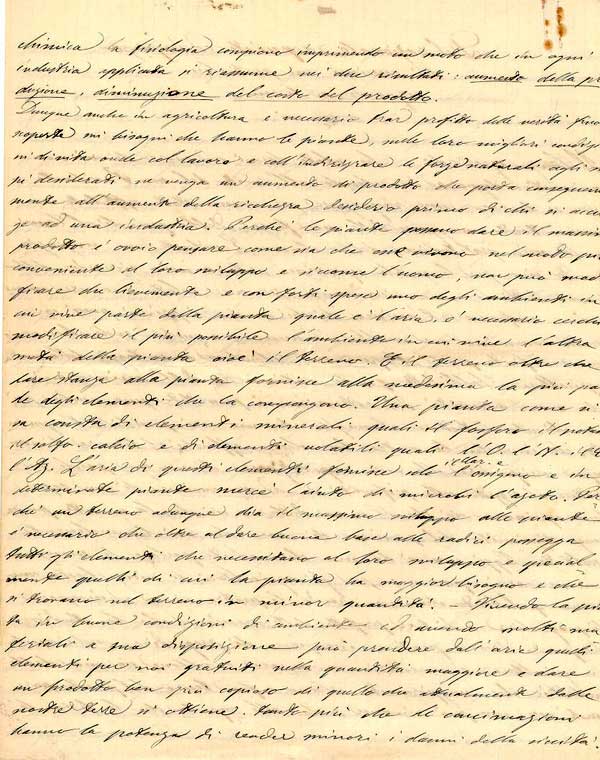 chimica la fisiologia compiono imprimendo un moto che in ogni
industria applicata si riassume nei due risultati: aumento della pro
duzione, diminuzione del costo del prodotto.
Dunque anche in agricoltura è necessario trar profitto delle verità finora
scoperte sui bisogni che hanno le piante, nelle loro migliori condizio
ni di vita onde col lavoro e coll'indirizzare le forze naturali agli s
pi desiderati ne venga un aumento di prodotto che porta conseguen
mente all'aumento della ricchezza desiderio primo di chi si accin
ge ad una industria. Perchè le piante possano dare il massimo
prodotto è ovvio pensare come sia che esse vivano nel modo più
conveniente al loro sviluppo e siccome l'uomo, non può modi
ficare che lievemente e con forti spese uno degli ambienti in
cui vive parte della pianta quale è l'aria, è necessario cerchi
modificare il più possibile l'ambiente in cui vive l'altra
metà della pianta cioè il terreno. E il terreno oltre che
dare stanza alla pianta fornisce alla medesima la più par
te degli elementi che la compongono. Una pianta come si
sa consta di elementi minerali quali il fosforo il potas
il solfo calcio e di elementi volatili quali l'O. l'N. il C
l'Az. L'aria di questi elementi fornisce solo il Car. e l'ossigeno e in
determinate piante mercè l'aiuto di microbi l'azoto. Per
chè un terreno adunque dia il massimo sviluppo alle piante
è necessario che oltre al dare buona base alle radici possegga
tutti gli elementi che necessitano al loro sviluppo e special
mente quelli di cui la pianta ha maggior bisogno e che
si trovano nel terreno in minor quantità. – Vivendo la pian
ta in buone condizioni di ambiente ed avendo molti ma
teriali a sua disposizione può prendere dall'aria quelli
elementi per noi gratuiti nella quantità maggiore e dare
un prodotto ben più copioso di quello che attualmente dalle
nostre terre si ottiene. tanto più che le concimazioni
hanno la potenza di render minori i danni della siccità.